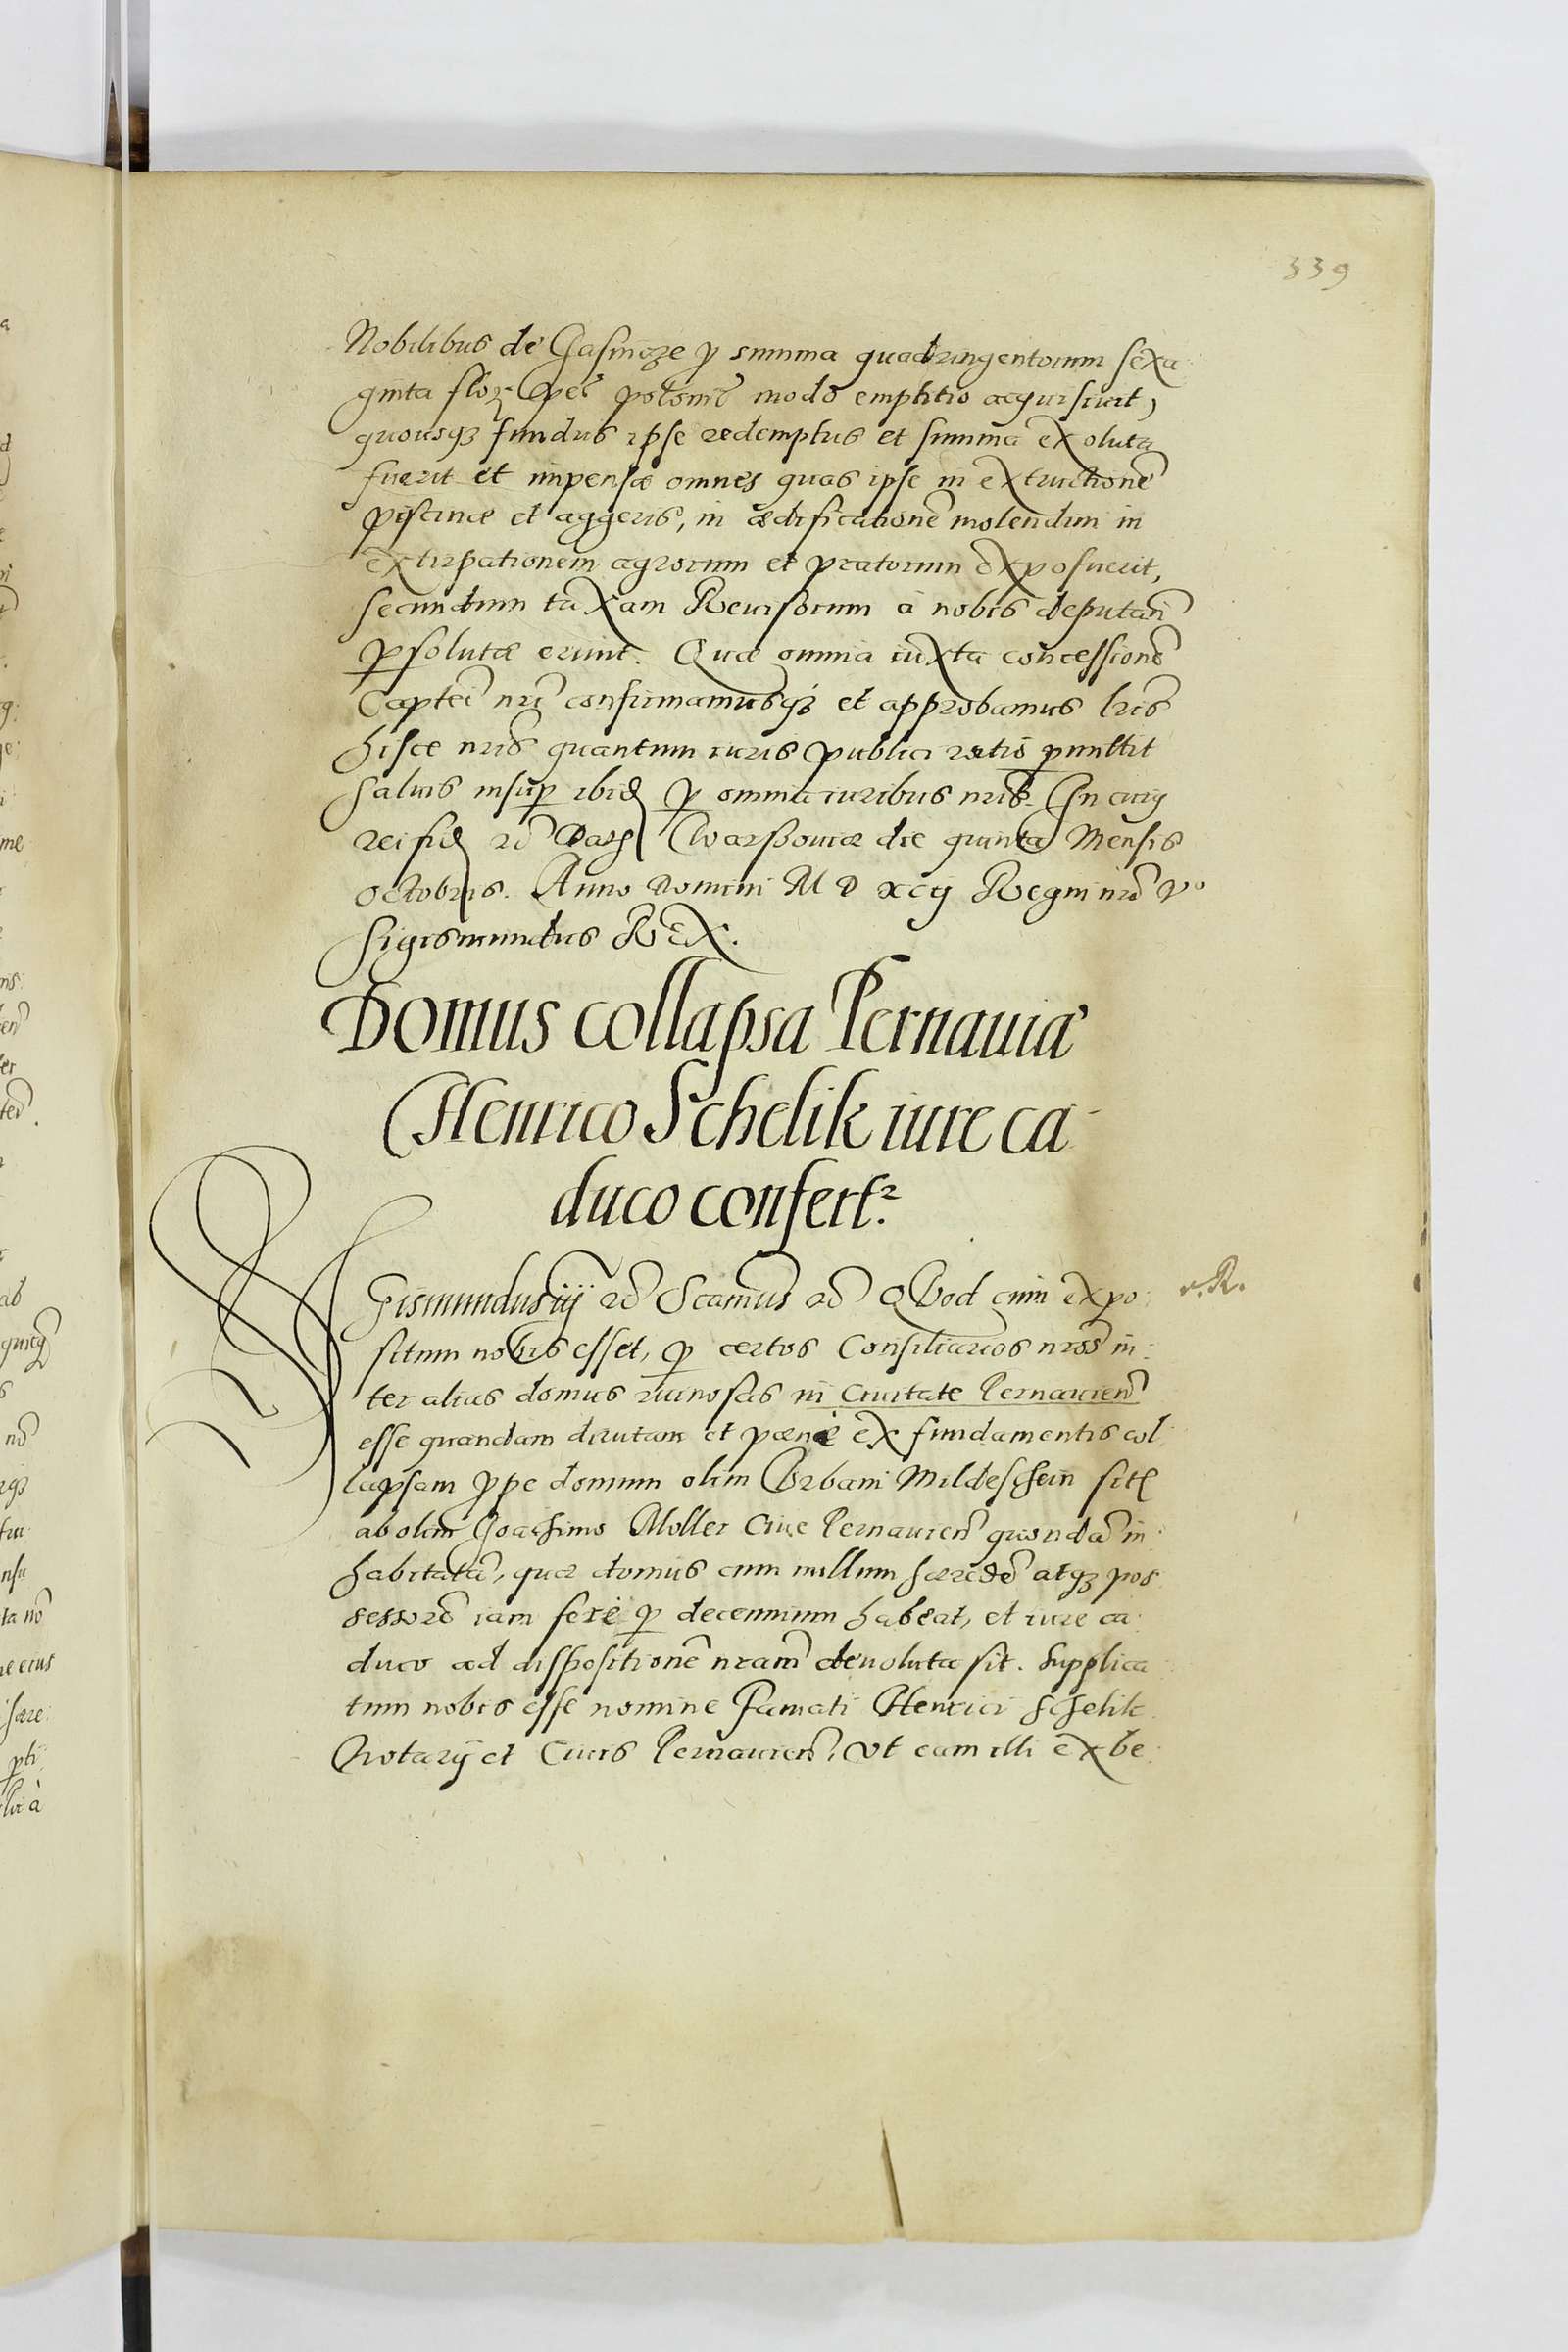 339
Nobilibus de Jasmoze p summa quadringentorum sexa
ginta flor pec polonic modo emptitio acquisiuit,
quousq3 fundus ipse redemptus et summa exoluta
fuerit et impensæ omnes quas ipse in extructione
piscinæ et aggeris, in ædificatione molendini in
extirpationem agrorum et pratorum exposuerit,
secundum taxam Reuisorum à nobis deputan
psolutæ erunt. Quæ omnia iuxta concessione
Captei nri confirmamusq3 et approbamus lris
hisce nris quantum iuris publici ratio pmittit
saluis insup ibid p omnia iuribus nris. In cuiq
rei fid rc Dat Warssouiæ die quinta Mensis
Octobris. Anno Domini M D xcij Regni nri vo
Sigismundus REX.
Domus collapsa Pernauiæ
Henrico Schelik iure ca-
duco confert2.
SIgismundus iij rc Scamus rc QVod cum expo:
situm nobis esset, p certos Consiliarios nros in:
ter alias domus ruinosas in Ciuitate Pernauien
esse quandam dirutam et pæne ex fundamentis col
lapsam ppe domum olim Vrbani Mildeschein sit
ab olim Joachimo Moller Ciue Pernauien quonda in:
habitata, quæ domus cum nullum hærede atq3 pos
sessore iam fere p decennium habeat, et iure ca:
duco ad dispositione nram deuoluta sit. Supplica
tum nobis esse nomine Famati Henrici Schelik
Notarij et Ciuis Pernauien, Vt eam illi ex be:
v. R.